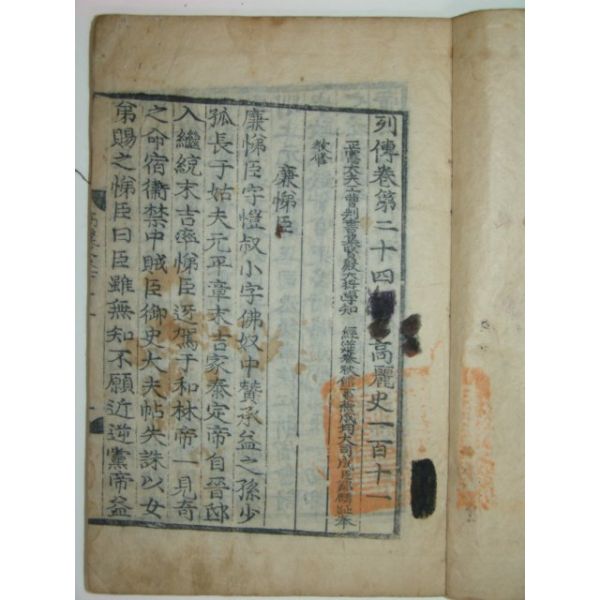 列傳卷第二十四 高麗史一百十一
正憲大夫工曹判書集賢殿大提學知 經筵春秋館事兼成均大司成臣鄭麟趾奉
敎修
廉悌臣
廉悌臣字愷叔小字佛奴中贊承益之孫少
孤長于姑夫元平章末吉家泰定帝自晉邸
入繼統末吉率悌臣迓駕于和林帝一見奇
之命宿衛禁中賊臣御史大夫帖失誅以女
弟賜之悌臣曰臣雖無知不願近逆黨帝益